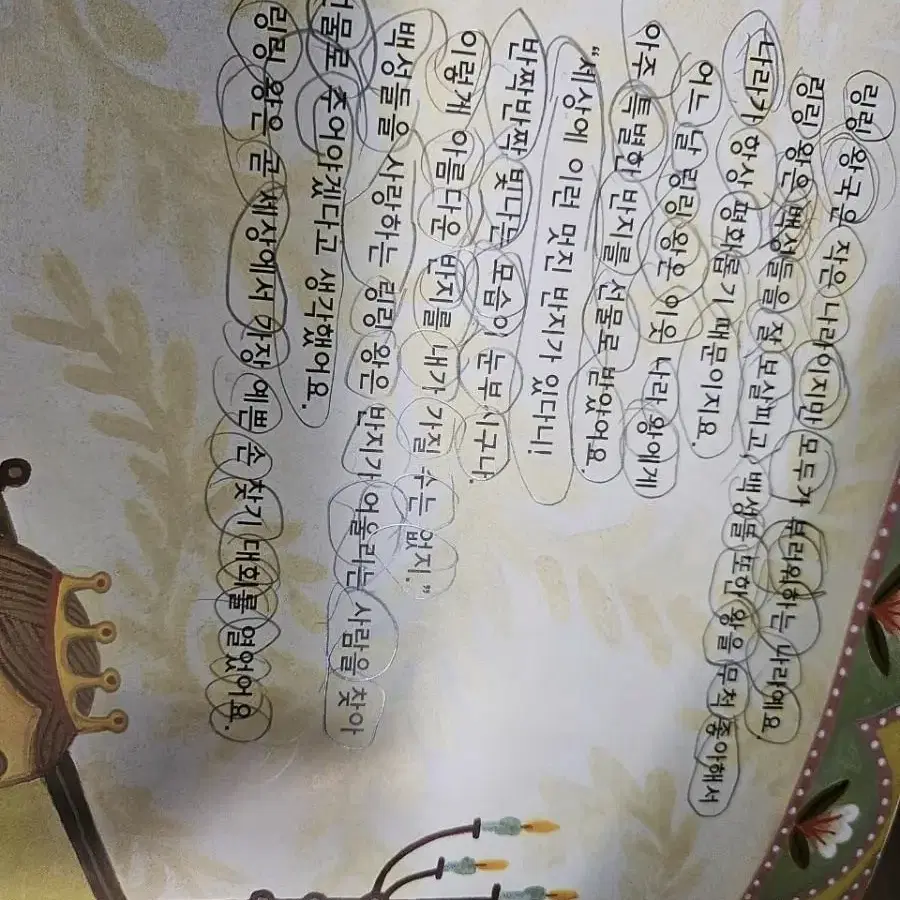 링링 왕국은 작은 나라이지만 모두가 부러워하는 나라예요.
링링 왕은 백성들을 잘 보살피고, 백성들 또한 왕을 무척 좋아해서
나라가 항상 평화롭기 때문이지요.
어느 날 링링 왕은 이웃 나라 왕에게
아주 특별한 반지를 선물로 받았어요.
“세상에 이런 멋진 반지가 있다니!
반짝반짝 빛나는 모습이 눈부시구나.
이렇게 아름다운 반지를 내가 가질 수는 없지.”
백성들을 사랑하는 링링 왕은 반지가 어울리는 사람을 찾아
선물로 주어야겠다고 생각했어요.
링링 왕은 곧 세상에서 가장 예쁜 손 찾기 대회를 열었어요.